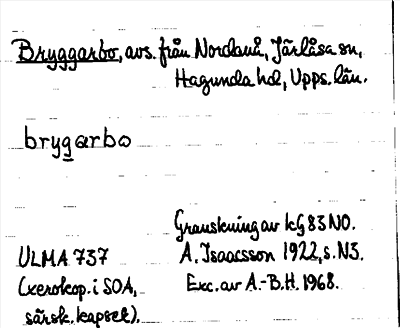 Bryggarbo, avs. från Nordanå, Järlåsa sn,
Hagunda hd, Upps. län.
brygarbo
Granskning av kG 83 NO.
ULMA 737
A. Isaacsson 1922, s. N3.
(xerokop. i SOA,
Exc. av A.-B.H. 1968.
särsk. kapsel).